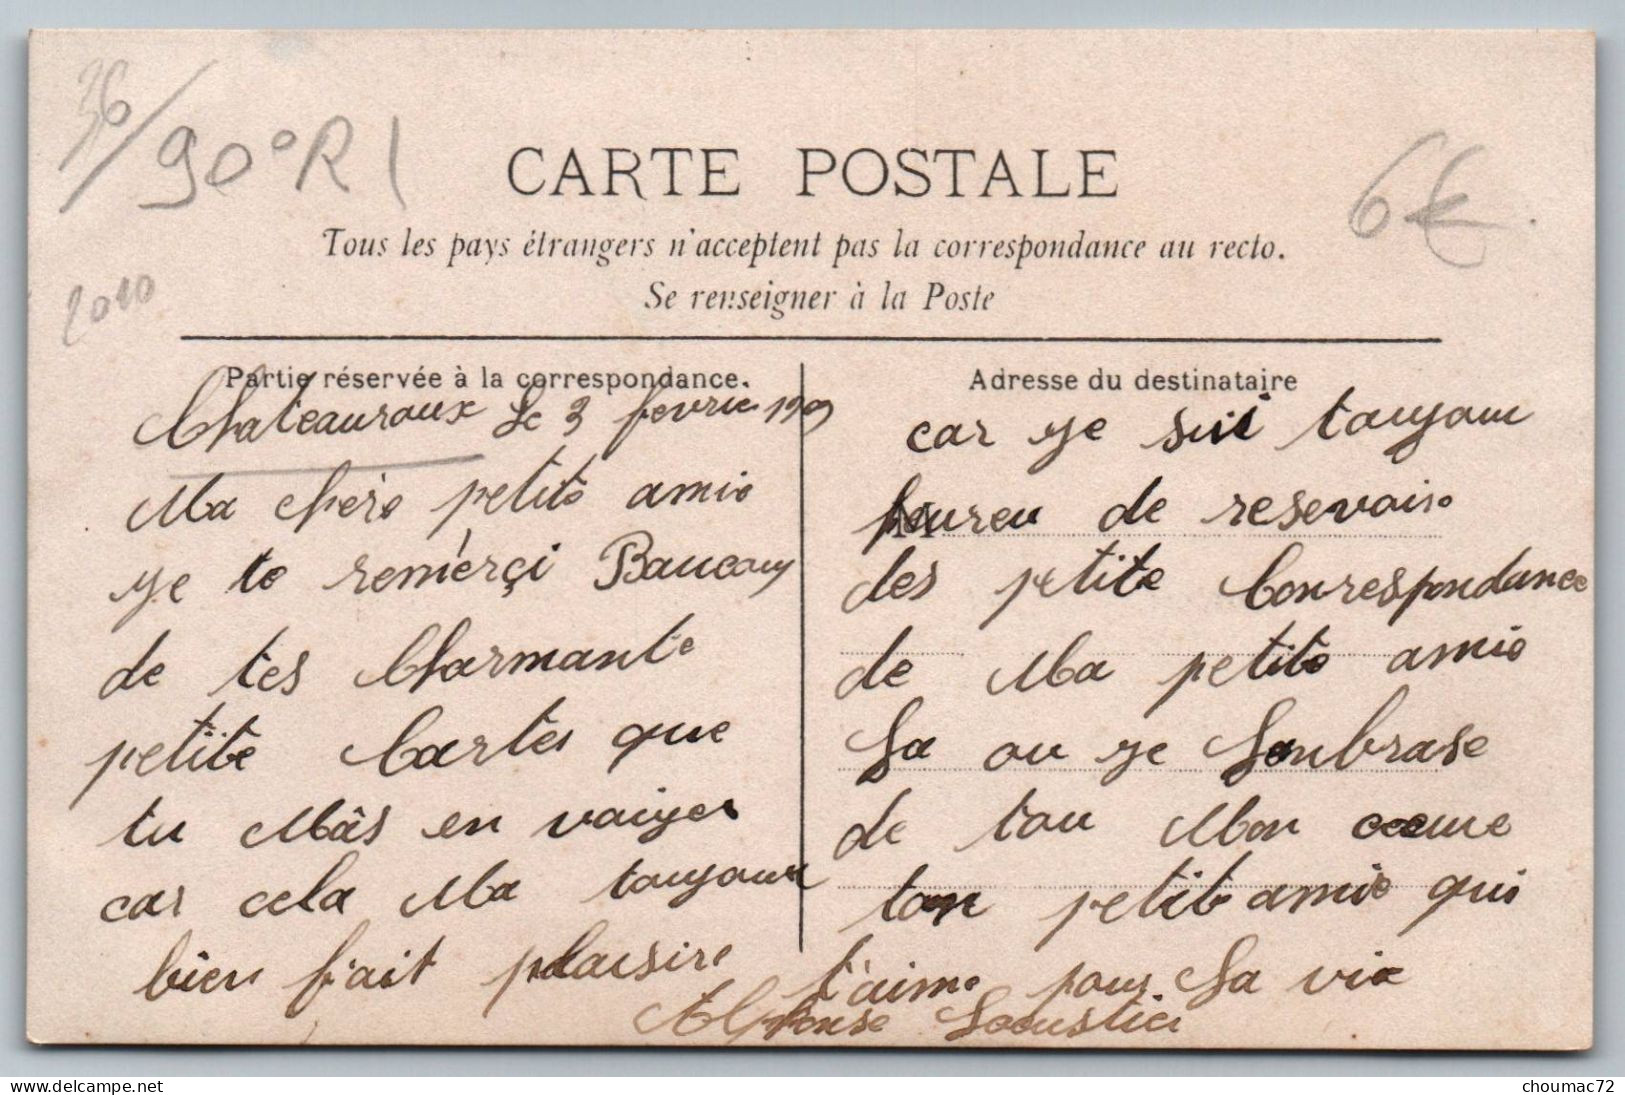 36/90°RI
6€
2010
CARTE POSTALE
Tous les pays étrangers n'acceptent pas la correspondance au recto.
Se renseigner à la Poste
Partie réservée à la correspondance.
Chateauroux Le 3 fevrie 1909
Ma chère petite amie
je te remerçi Baucoup
de tes Charmante
petite Cartes que
tu Mâs en voiyer
car cela Ma toujour
bien fait plaisire
Adresse du destinataire
car je suit toujour
heureu de resevoire
des petite Correspondance
de Ma petite amie
La ou je Lenbrase
de tou Mon coeure
ton petit amie qui
t'aime pour La vie
Alphonse
choumac72